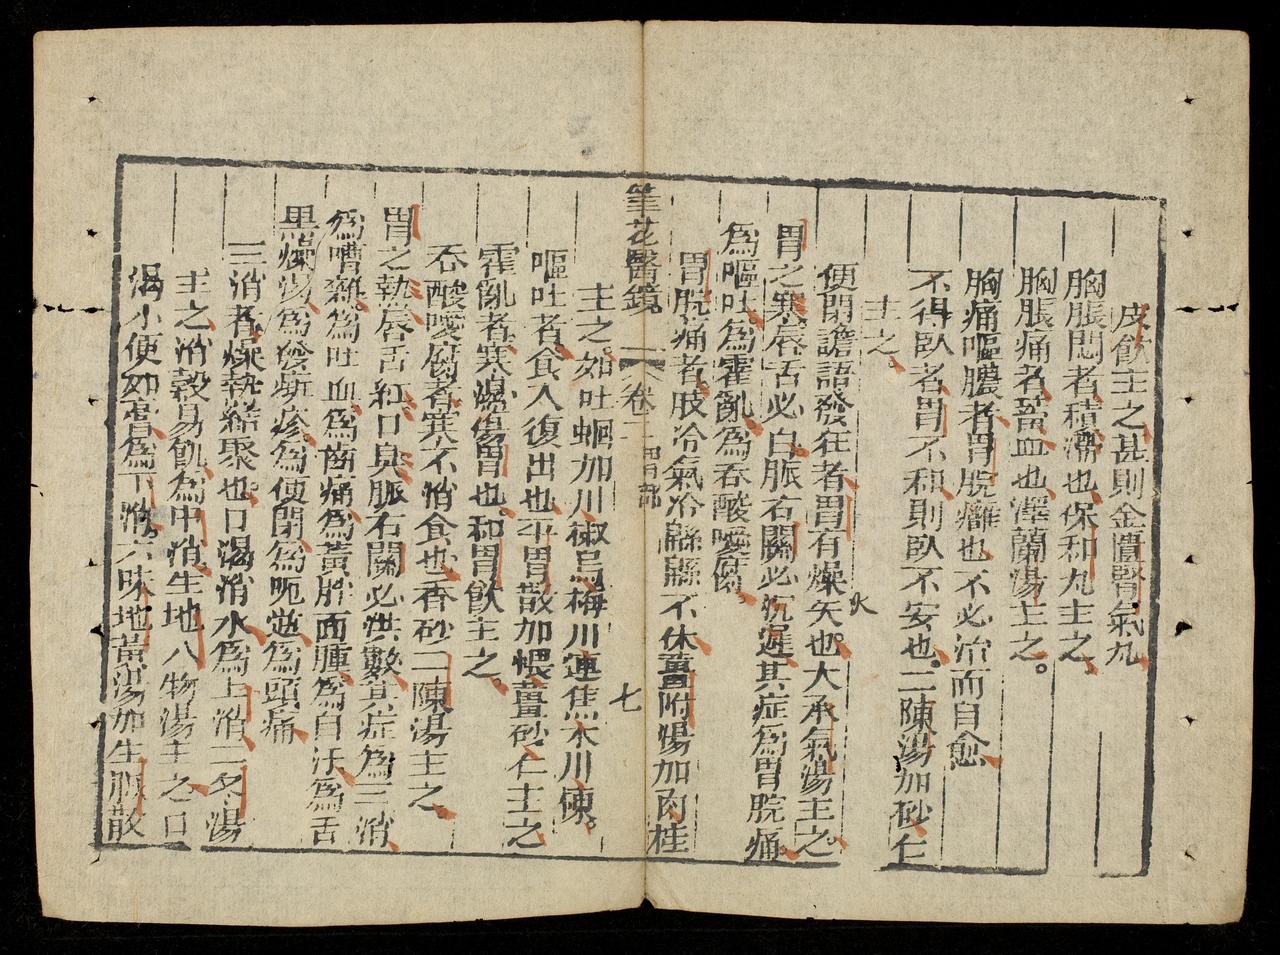 皮飲主之甚則金匱腎氣丸
胸脹悶者積滯也保和丸主之
胸脹痛者蓄血也澤蘭湯主之。
胸痛嘔膿者胃脘癰也不必治而自愈
不得臥者胃不和則臥不安也。二陳湯加砂仁
主之。
便閉譫語發狂者胃有燥矢也。大承氣湯主之。
火
胃之寒唇舌必白脈右關必沉遲其症為胃脘痛。
為嘔吐。為霍亂為吞酸噯腐。
胃脘痛者肢冷氣冷緜緜不休薑附湯加肉桂
筆花醫鏡 卷二 胃部 七
主之。如吐蛔加川椒烏梅川連焦朮川楝。
嘔吐者食入復出也平胃散加煨薑砂仁主之
霍亂者寒濕傷胃也。和胃飲主之。
吞酸噯腐者寒不消食也香砂二陳湯主之。
胃之熱唇舌紅口臭脈右關必洪數其症為三消
為嘈雜為吐血為齒痛為黃胖面腫為自汗為舌
黑燥渴為發斑疹為便閉為呃逆為頭痛
三消者燥熱結聚也口渴消水為上消二冬湯
主之消穀易飢為中消生地八物湯主之口
渴小便如膏為下消。六味地黃湯加生脈散